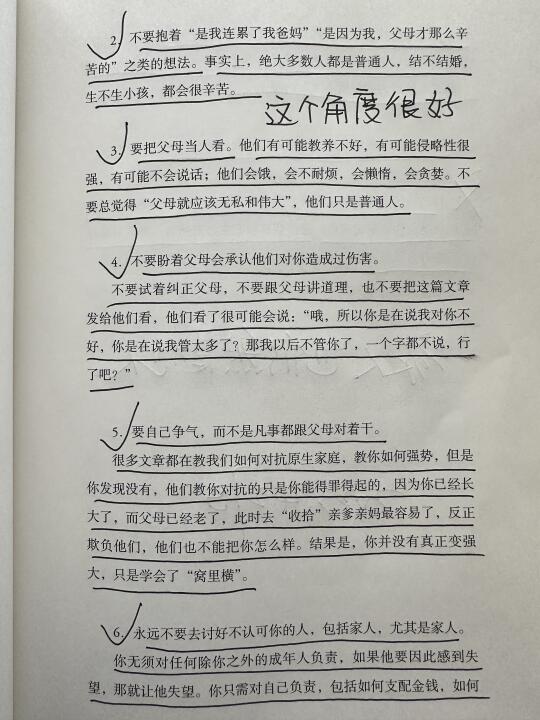 2. 不要抱着“是我连累了我爸妈”“是因为我，父母才那么辛
苦的”之类的想法。事实上，绝大多数人都是普通人，结不结婚，
生不生小孩，都会很辛苦。
这个角度很好
3. 要把父母当人看。他们有可能教养不好，有可能侵略性很
强，有可能不会说话；他们会饿，会不耐烦，会懒惰，会贪婪。不
要总觉得“父母就应该无私和伟大”，他们只是普通人。
4. 不要盼着父母会承认他们对你造成过伤害。
不要试着纠正父母，不要跟父母讲道理，也不要把这篇文章
发给他们看，他们看了很可能会说：“哦，所以你是在说我对你不
好，你是在说我管太多了？那我以后不管你了，一个字都不说，行
了吧？”
5. 要自己争气，而不是凡事都跟父母对着干。
很多文章都在教我们如何对抗原生家庭，教你如何强势，但是
你发现没有，他们教你对抗的只是你能得罪得起的，因为你已经长
大了，而父母已经老了，此时去“收拾”亲爹亲妈最容易了，反正
欺负他们，他们也不能把你怎么样。结果是，你并没有真正变强
大，只是学会了“窝里横”。
6. 永远不要去讨好不认可你的人，包括家人，尤其是家人。
你无须对任何除你之外的成年人负责，如果他要因此感到失
望，那就让他失望。你只需对自己负责，包括如何支配金钱，如何